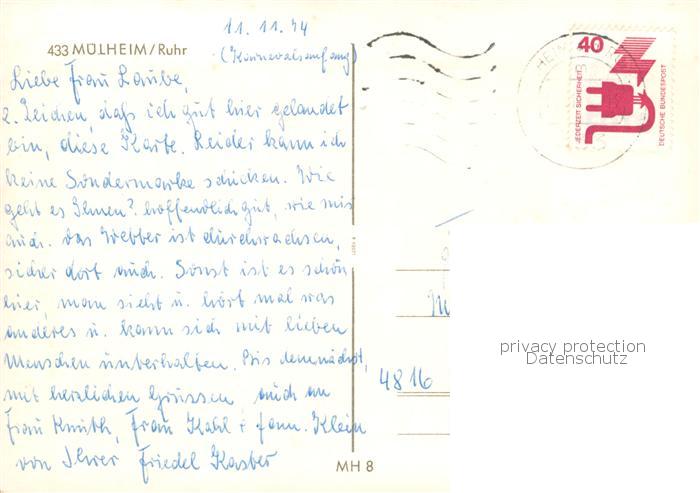 11.11.74
433 MÜLHEIM/Ruhr
(Karnevalsanfang)
Liebe Frau Laube,
z. Zeichen, daß ich gut hier gelandet
bin, diese Karte. Leider kann ich
keine Sondermarke schicken. Wie
geht es Ihnen? hoffendlich gut, wie mir
auch. Das Wetter ist durchwachsen,
sicher dort auch. Sonst ist es schön
hier, man sieht u. hört mal was
anderes u. kann sich mit lieben
Menschen unterhalten. Bis demnächst,
mit herzlichen Grüssen auch an
Frau Knuth, Frau Kahl + fam. Klein
von Ihrer Friedel
MH 8
40
JEDERZEIT SICHERHEIT
DEUTSCHE BUNDESPOST
4816
privacy protection
Datenschutz